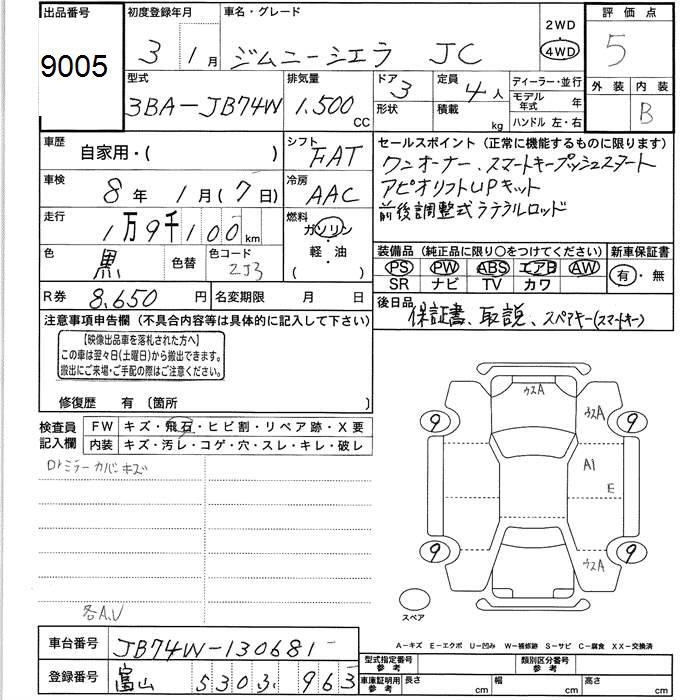 出品番号 初度登録年月 車名・グレード 2WD 評価点
9005 3 1月 ジムニーシエラ JC 4WD 5
型式 排気量 ドア 3 定員 4人 ディーラー・並行 外装 内装
3BA-JB74W 1.500 CC 形状 積載 kg モデル年式 年 B
ハンドル 左・右
車歴 自家用・( ) シフト FAT セールスポイント(正常に機能するものに限ります)
車検 8年 1月(7日) 冷房 AAC ワンオーナー、スマートキープッシュスタート
アピオリフトUPキット
走行 1万9千100km 燃料 ガソリン 前後調整式ラテラルロッド
軽・油
( )
色 黒 色替 色コード 2J3 装備品(純正品に限り○をつけてください) 新車保証書
PS PW ABS エアB AW 有・無
SR ナビ TV カワ
R券 8,650円 名変期限 月 日 後日品
保証書、取説、スペアキー(スマートキー)
注意事項申告欄(不具合内容等は具体的に記入して下さい)
【映像出品車を落札された方へ】
この車は翌々日(土曜日)から搬出できます。
搬出にご来場・ご手配の際はご注意ください。
修復歴 有 〔箇所 〕
検査員記入欄 FW キズ・飛石・ヒビ割・リペア跡・X要
内装 キズ・汚レ・コゲ・穴・スレ・キレ・破レ
Dトミラーカバーキズ
各A,U
ウスA
9 ウスA 9
A1
E
9 ウスA 9
スペア
A-キズ E-エクボ U-凹み W-補修跡 S-サビ C-腐食 XX-交換済
車台番号 JB74W-130681 型式指定番号 参考 類別区分番号 参考
登録番号 富山 530 963 車庫証明用 参考 長さ cm 幅 cm 高さ cm